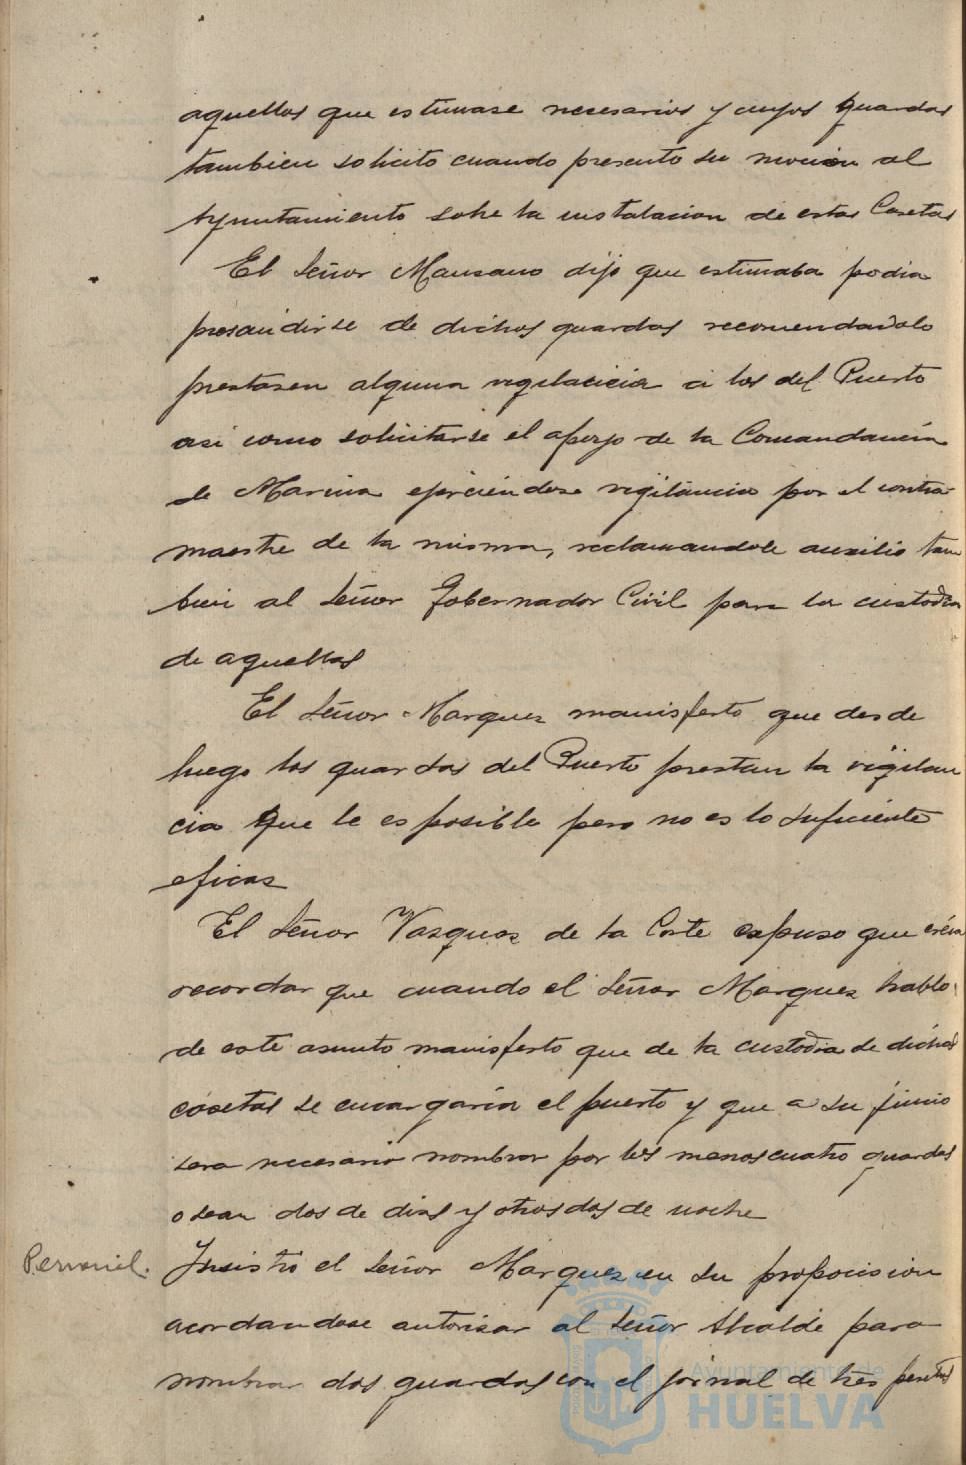 aquellos que estimase necesarios y cuyos guardas
tambien solicito cuando presento su mocion al
Ayuntamiento sobre la instalacion de estas Casetas
El Señor Mansano dijo que estimaba podia
prescindirse de dichos guardas recomendadolo
prestasen alguna vigilacicia a los del Puerto
asi como solicitarse el apoyo de la Comandancia
de Marina ejerciendose vigilancia por el contra-
maestre de la misma, reclamandole auxilio tam
bien al Señor Gobernador Civil para la custodia
de aquellas
El Señor Marquez manisferto que desde
luego los guardas del Puerto prestan la vigilan
cia que le es posible pero no es lo suficiente
eficas
El Señor Vasquez de la Corte expuso que creia
recordar que cuando el Señor Marquez hablo
de este asunto manisferto que de la custodia de dichas
casetas se encargaria el puerto y que a su juicio
sera necesario nombrar por los menos cuatro guardas
o sean dos de dias y otros dos de noche
Personal. Insistio el Señor Marquez en su propocision
acordandose autorisar al Señor Alcalde para
nombrar dos guardas con el jornal de tres pesetas
Ayuntamiento de
HUELVA